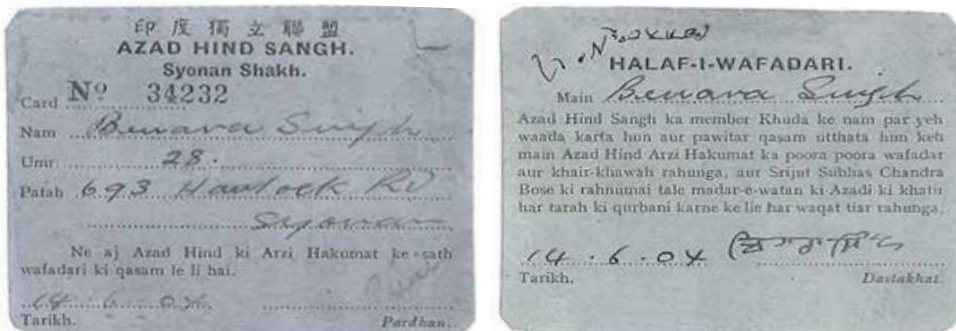 印度獨立聯盟
AZAD HIND SANGH.
Syonan Shakh.
Card Nº 34232
Nam Benara Singh
Umr 28.
Patah 693 Havlock Rd
Syonan
Ne aj Azad Hind ki Arzi Hakumat ke sath
wafadari ki qasam le li hai.
14.6.04
Tarikh. Pardhan.
HALAF-I-WAFADARI.
Main Benara Singh
Azad Hind Sangh ka member Khuda ke nam par yeh
waada karta hun aur pawitar qasam utthata hun keh
main Azad Hind Arzi Hakumat ka poora poora wafadar
aur khair-khawah rahunga, aur Srijut Subhas Chandra
Bose ki rahnumai tale madar-e-watan ki Azadi ki khatir
har tarah ki qurbani karne ke lie har waqat tiar rahunga.
14.6.04
Tarikh. Dastakhat.